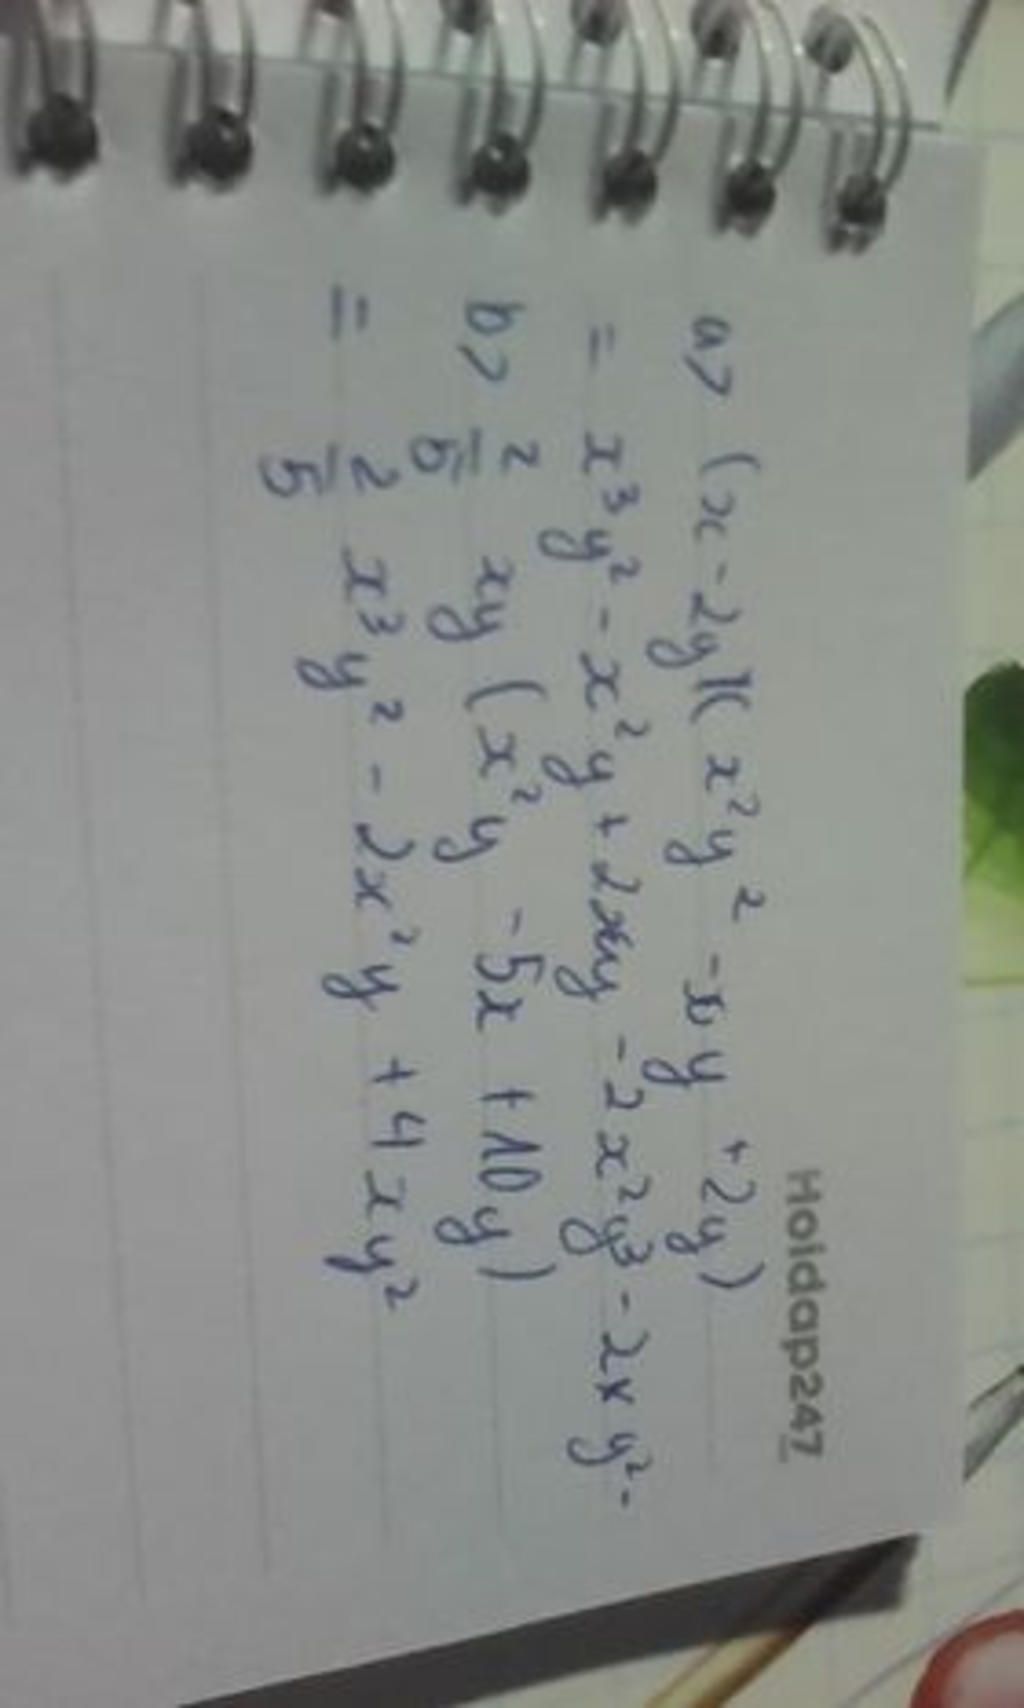 Hoidap247
a) (x - 2y)(x²y² - xy + 2y)
= x³y² - x²y + 2xy - 2x²y³ - 2xy² -
b) 2/5 xy (x²y - 5x + 10y)
= 2/5 x³y² - 2x²y + 4xy²